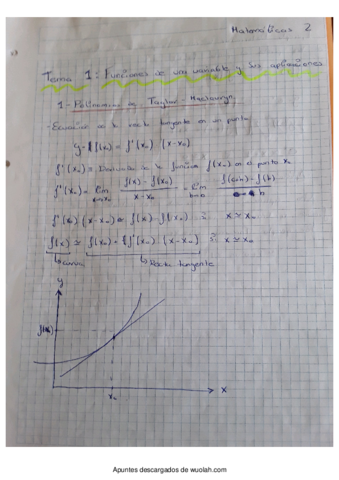 Matemáticas 2
Tema 1: Funciones de una variable y sus aplicaciones
1- Polinomios de Taylor - Maclauryn
- Ecuación de la recta tangente en un punto
y - f(x₀) = f'(x₀) (x-x₀)
f'(x₀) = Derivada de la función f(x) en el punto x₀
f'(x₀) = lím f(x) - f(x₀) / x - x₀ = lím
f'(x₀) (x-x₀) ≃ f(x) - f(x₀) si x ≃ x₀
f(x) ≃ f(x₀) + f'(x₀) · (x-x₀) si x ≃ x₀
↳ curva ↳ Recta tangente
y
f(x₀)
x₀
x
Apuntes descargados de wuolah.com